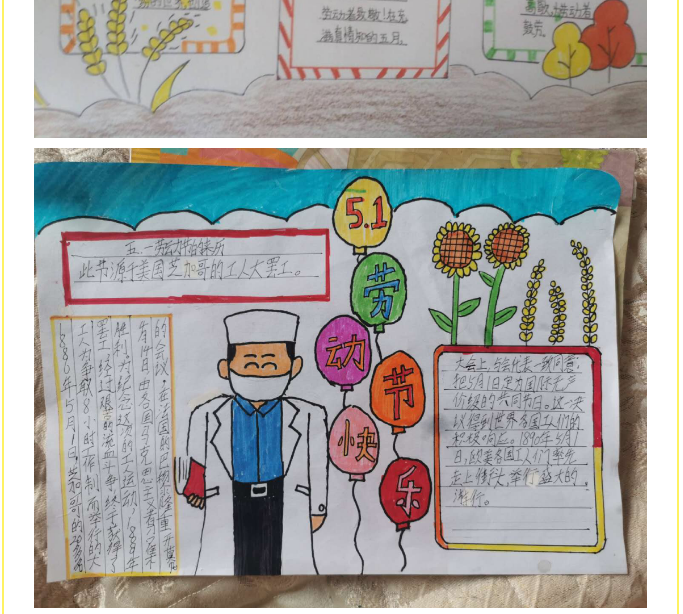 劳动者致敬!在充
满真情的五月。
致敬,劳动者
鼓劳。
5.1
劳
动
节
快
乐
五一劳动节的来历
此节源于美国芝加哥的工人大罢工。
1886年5月1日,芝加哥的20多万
工人为争取8小时工作制而举行的大
罢工,经过艰苦的流血斗争,终于获得了
胜利。为纪念这次的工人运动,1889年
7月14日,由各国马克思主义者召集
的会议,在法国的巴黎隆重开幕
大会上,与会代表一致同意:
把5月1日定为国际无产
阶级的共同节日。这一决
议得到世界各国工人们的
积极响应。1890年5月1
日,欧美各国工人们率先
走上街头,举行盛大的
游行。